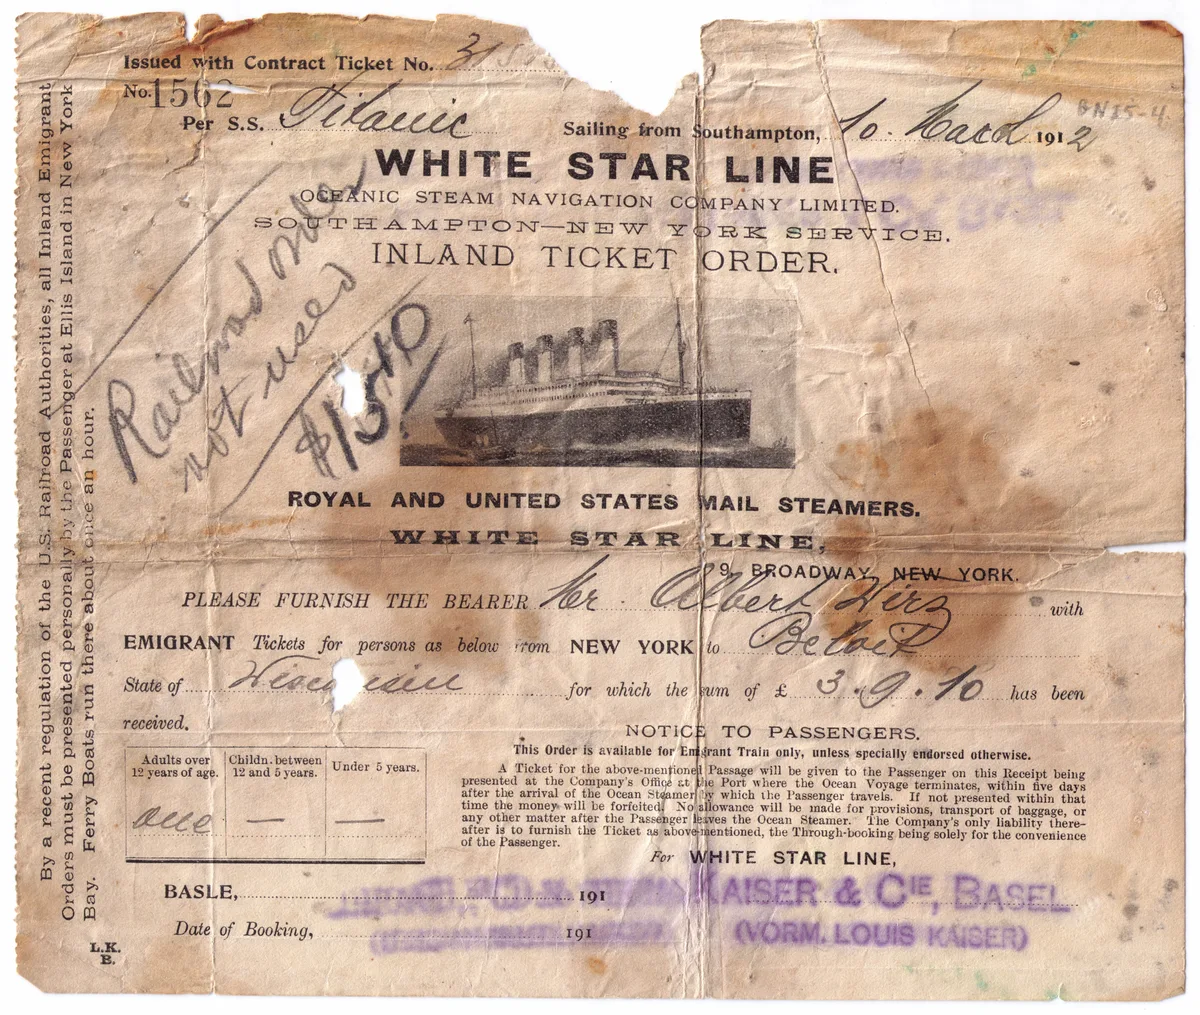 Issued with Contract Ticket No.
No. 1562
Per S.S. Titanic Sailing from Southampton, 10. March 1912
BN15-4.
WHITE STAR LINE
OCEANIC STEAM NAVIGATION COMPANY LIMITED.
SOUTHAMPTON—NEW YORK SERVICE.
INLAND TICKET ORDER.
Railroad order
not used
$15.40
ROYAL AND UNITED STATES MAIL STEAMERS.
WHITE STAR LINE,
9, BROADWAY, NEW YORK.
PLEASE FURNISH THE BEARER Mr. Albert Wirz with
EMIGRANT Tickets for persons as below from NEW YORK to Beloit
State of Wisconsin for which the sum of £ 3.9.10 has been
received.
NOTICE TO PASSENGERS.
This Order is available for Emigrant Train only, unless specially endorsed otherwise.
A Ticket for the above-mentioned Passage will be given to the Passenger on this Receipt being
presented at the Company's Office at the Port where the Ocean Voyage terminates, within five days
after the arrival of the Ocean Steamer by which the Passenger travels. If not presented within that
time the money will be forfeited. No allowance will be made for provisions, transport of baggage, or
any other matter after the Passenger leaves the Ocean Steamer. The Company's only liability there-
after is to furnish the Ticket as above-mentioned, the Through-booking being solely for the convenience
of the Passenger.
Adults over Childn. between Under 5 years.
12 years of age. 12 and 5 years.
one — —
For WHITE STAR LINE,
BASLE, 191
KAISER & CIE, BASEL
Date of Booking, 191
(VORM. LOUIS KAISER)
L.K.
B.
By a recent regulation of the U.S. Railroad Authorities, all Inland Emigrant
Orders must be presented personally by the Passenger at Ellis Island in New York
Bay. Ferry Boats run there about once an hour.